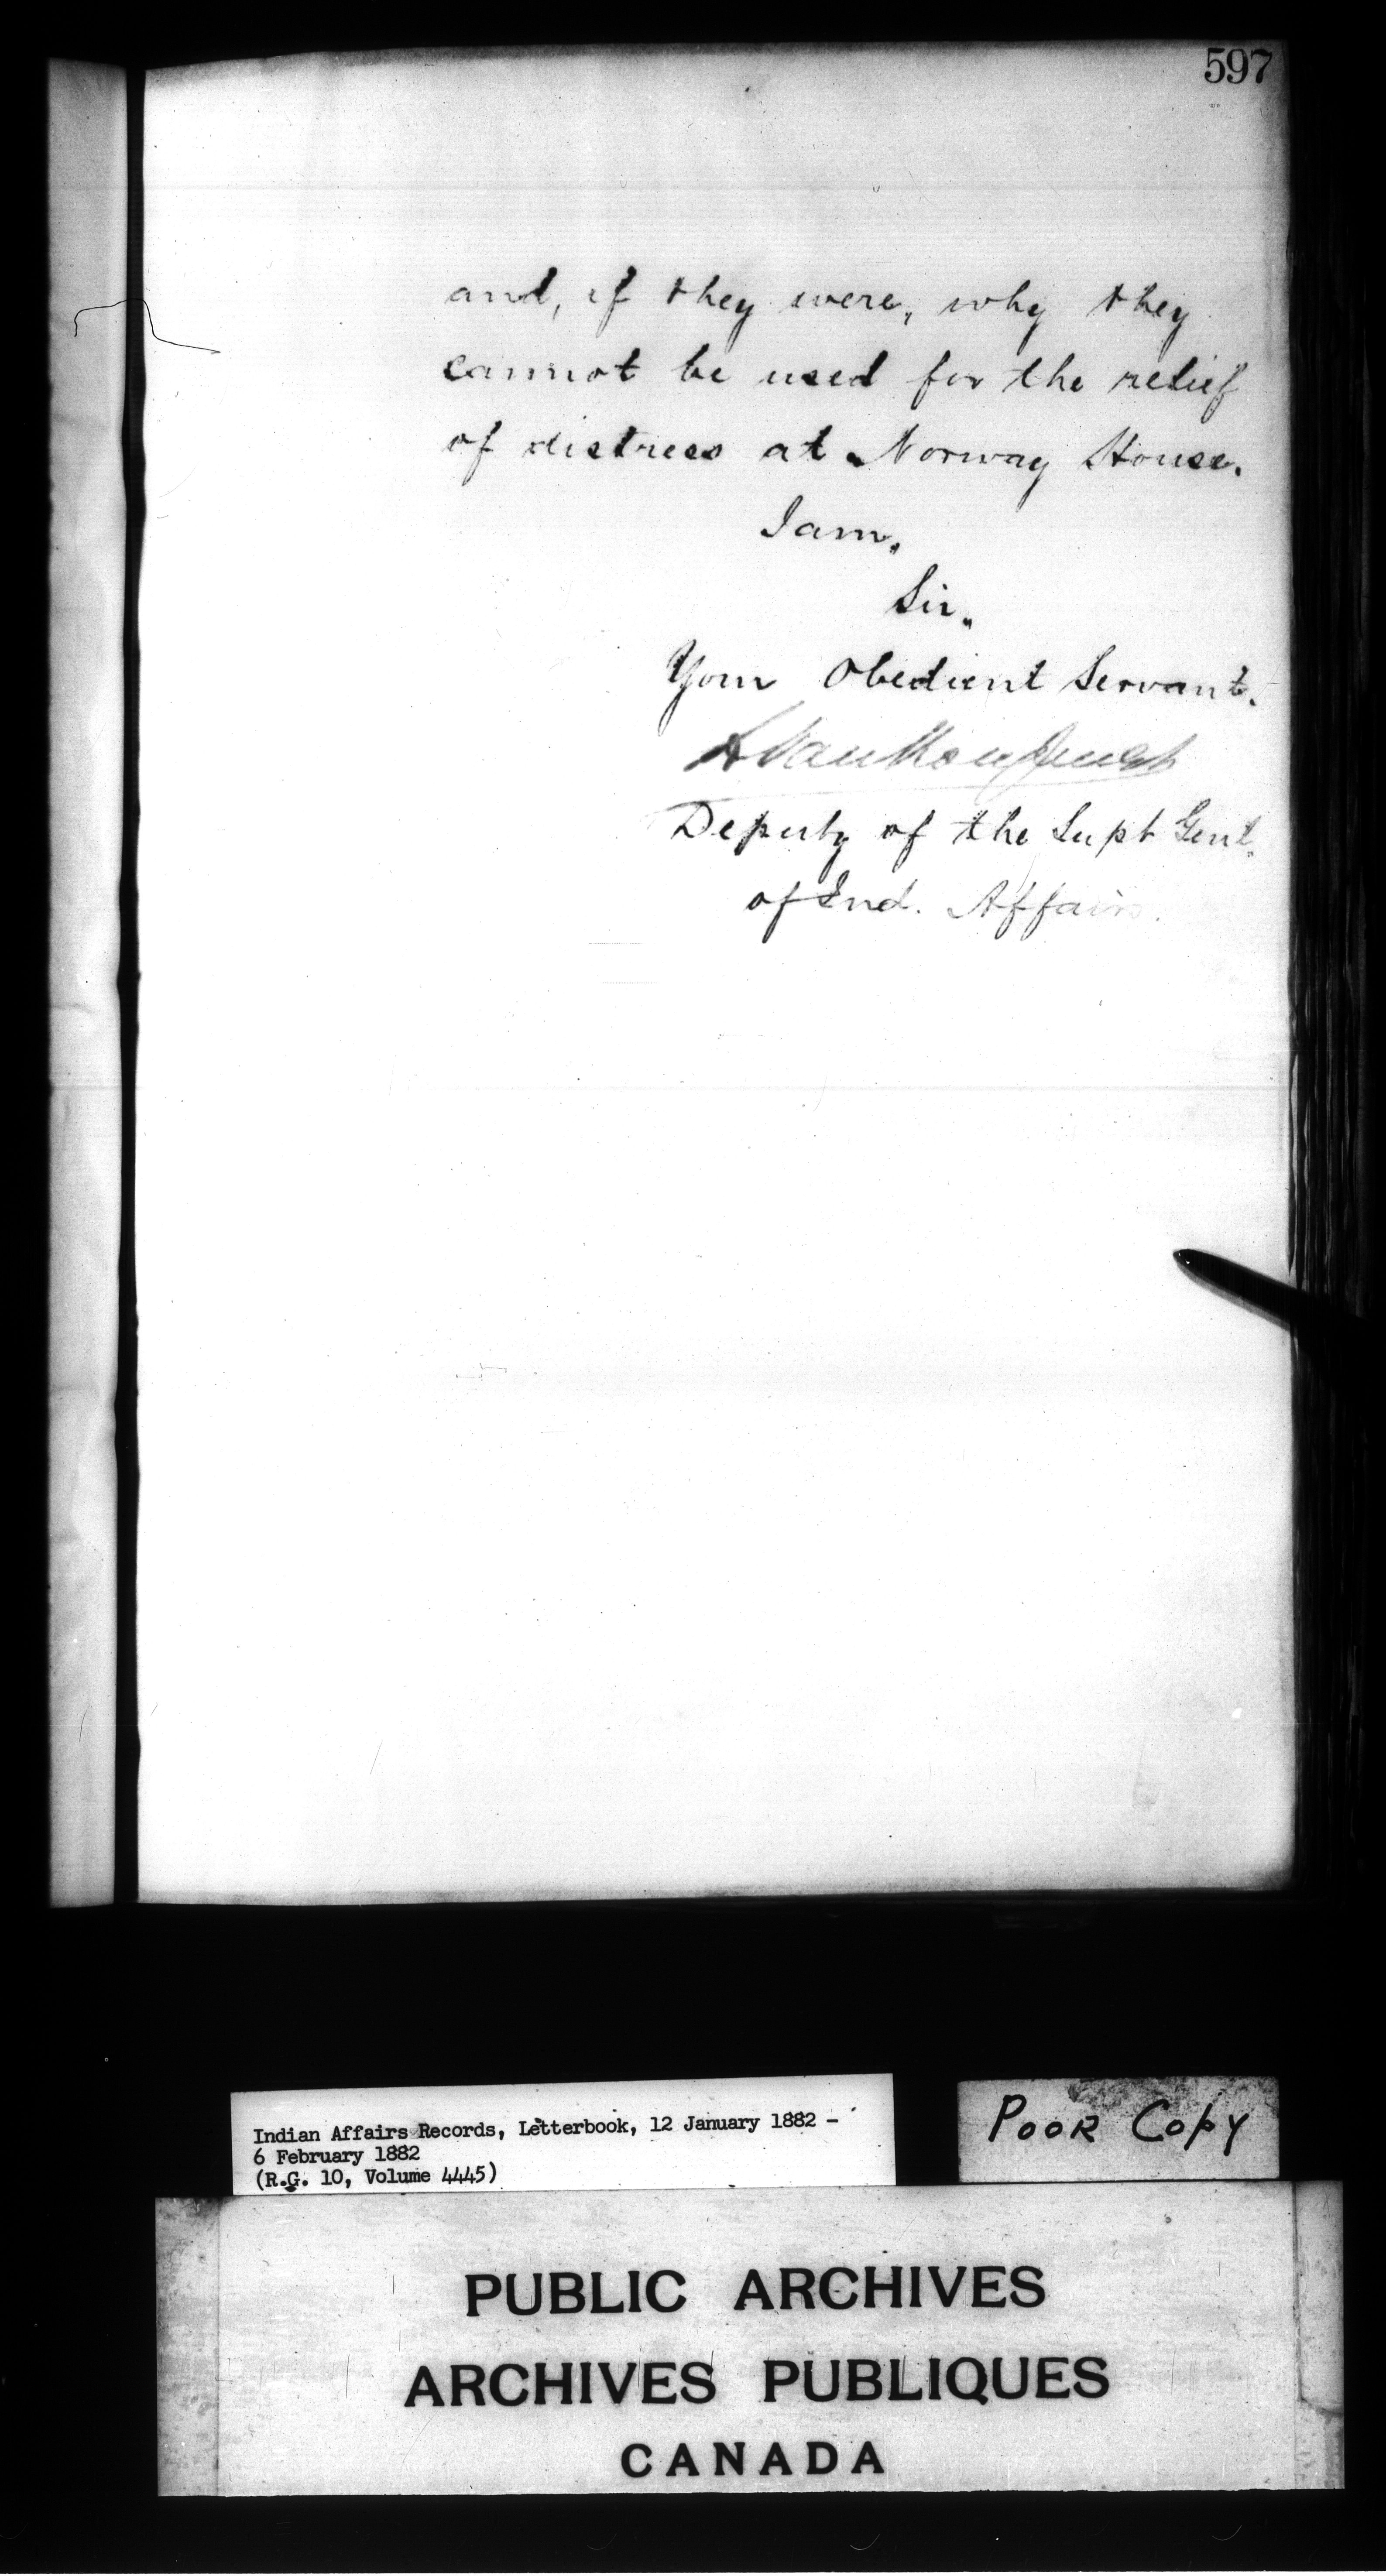 597
and, if they were, why they
cannot be used for the relief
of distress at Norway House.
I am,
Sir,
Your Obedient Servant.
L VanKoughnet
Deputy of the Supt Genl.
of Ind. Affairs.
Indian Affairs Records, Letterbook, 12 January 1882 -
6 February 1882
(R.G. 10, Volume 4445)
POOR COPY
PUBLIC ARCHIVES
ARCHIVES PUBLIQUES
CANADA